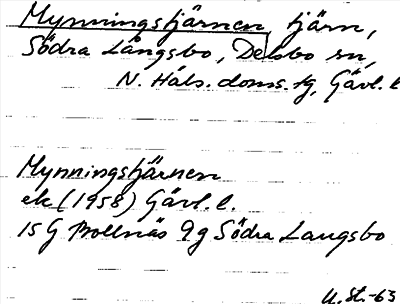 Mynningstjärnen tjärn,
Södra Långsbo, Delsbo sn,
N. Häls. doms. tg, Gävl. l
Mynningstjärnen
ek (1958) Gävl. l.
15 G Bollnäs 9g Södra Långsbo
U. St. -63